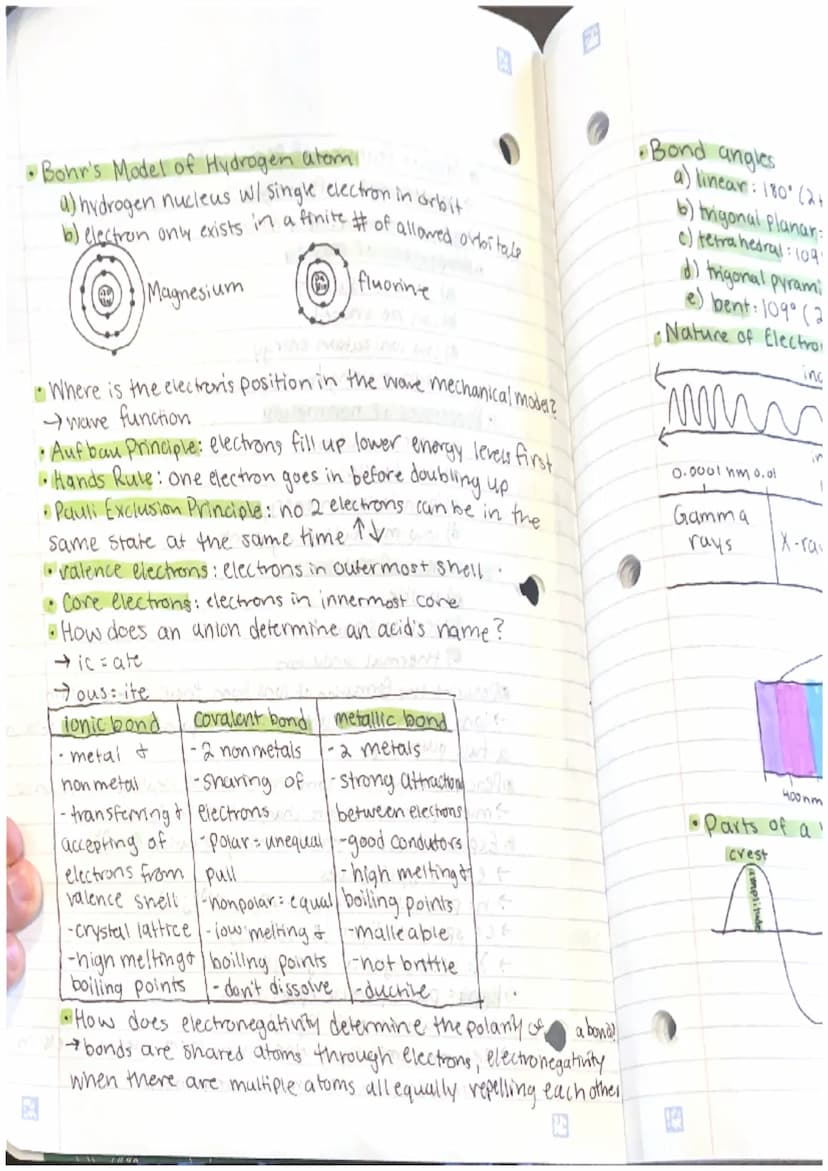 • Bohr's Model of Hydrogen atom
a) hydrogen nucleus w/ single electron in orbit
b) electron only exists in a finite # of allowed orbitals
Magnesium
fluorine
• Where is the electron's position in the wave mechanical model?
→ wave function
• Aufbau Principle: electrons fill up lower energy levels first
• Hands Rule: one electron goes in before doubling up
• Pauli Exclusion Principle: no 2 electrons can be in the
same state at the same time ↑↓
• valence electrons: electrons in outermost shell
• Core electrons: electrons in innermost core
• How does an anion determine an acid's name?
→ ic = ate
→ ous = ite
ionic bond
- metal &
nonmetal
- transferring &
accepting of
electrons from
valence shell
- crystal lattice
- high melting &
boiling points
covalent bond
- 2 nonmetals
- sharing of
electrons
- polar = unequal
pull
- nonpolar = equal
- low melting &
boiling points
- don't dissolve
metallic bond
- 2 metals
- strong attraction
between electrons
- good condutors
- high melting &
boiling points
- malleable
- not brittle
- ductile
• How does electronegativity determine the polarity of a bond?
→ bonds are shared atoms through electrons, electronegativity
when there are multiple atoms all equally repelling each other
• Bond angles
a) linear: 180° (2
b) trigonal planar:
c) tetrahedral: 109
d) trigonal pyrami
e) bent: 109° (2
• Nature of Electro
inc
0.0001 nm 0.01
Gamma
rays
X-ra
400nm
• Parts of a
crest
amplitude